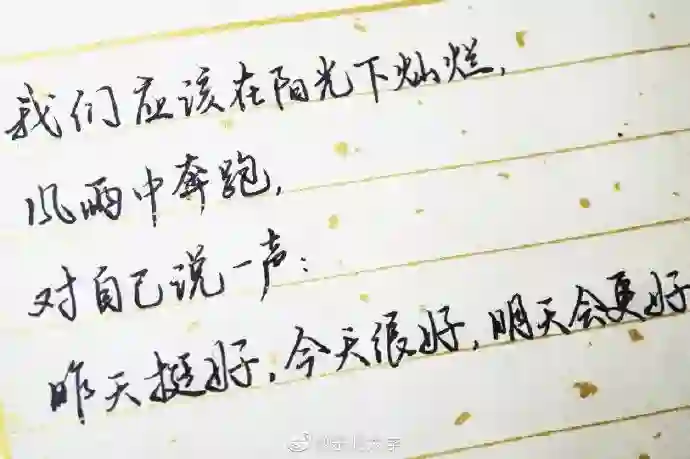 我们应该在阳光下灿烂,
风雨中奔跑,
对自己说一声:
昨天挺好,今天很好,明天会更好